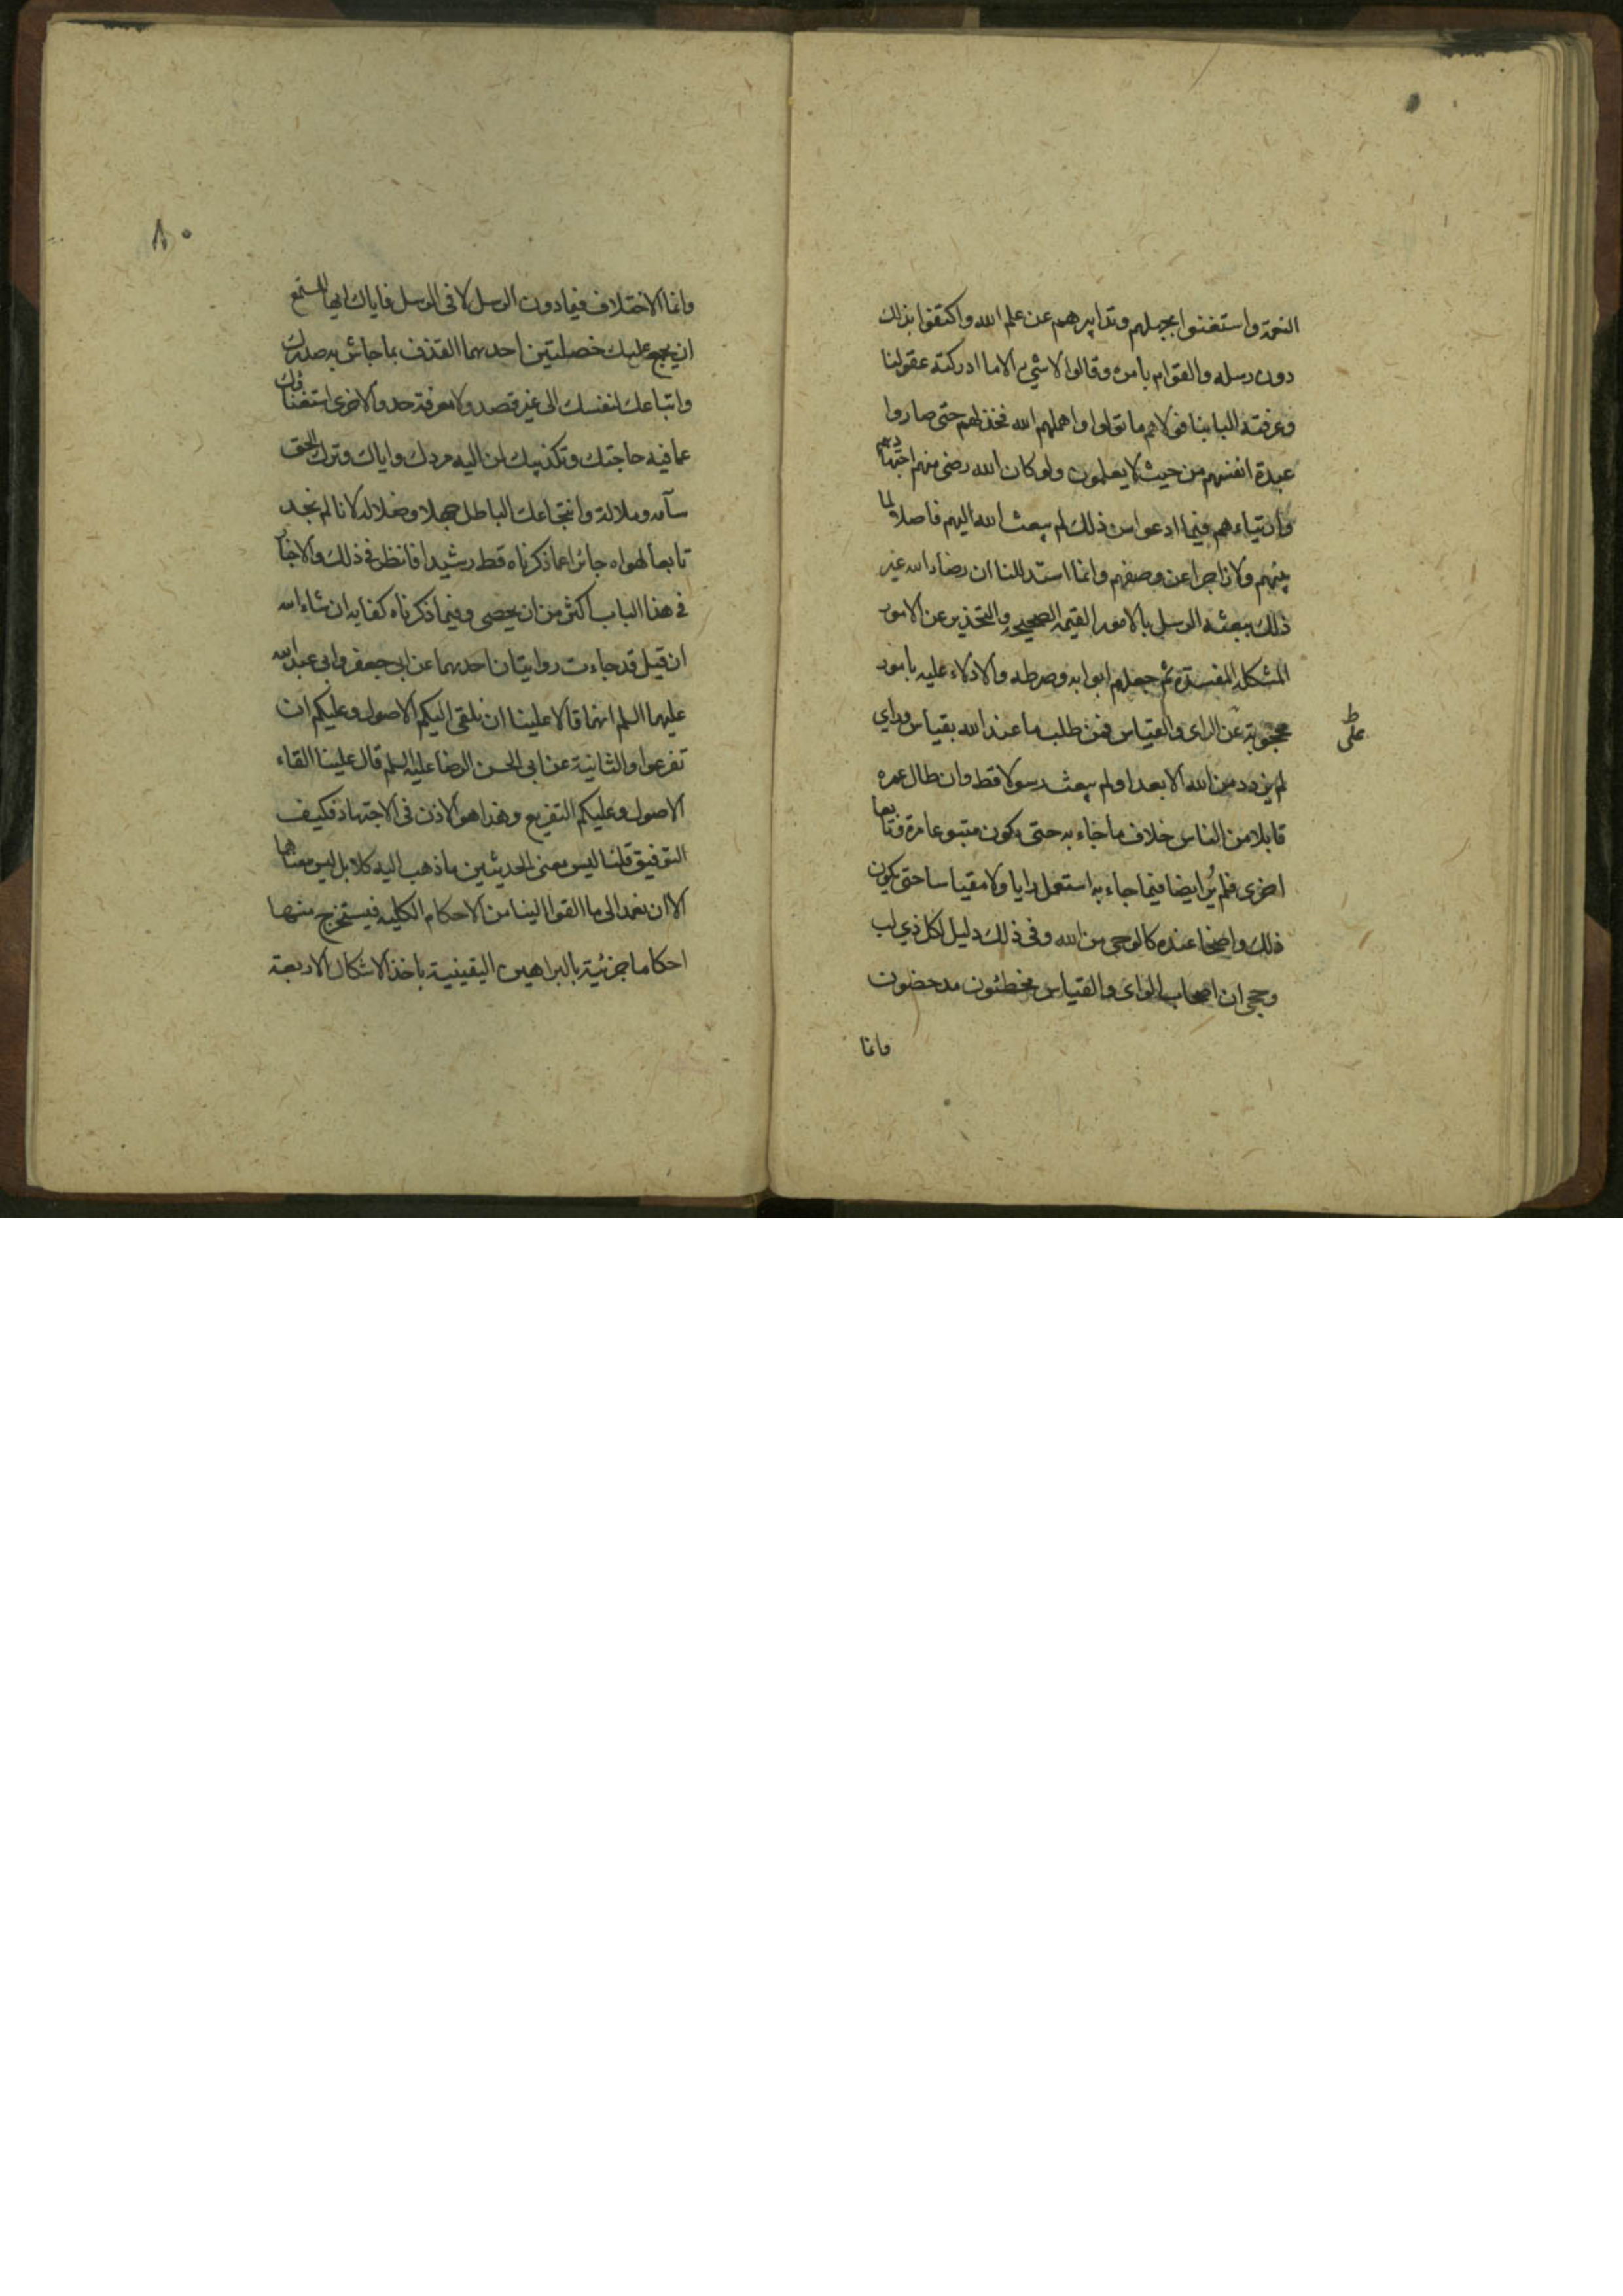 النعمة واستغنوا بجهلهم وتدابيرهم عن علم الله واكتفوا بذلك
دون رسله والقوام بامره وقالوا لا شيء الا ما ادركته عقولنا
وعرفته البابنا فولاهم ما تولوا واهملهم الله فخذلهم حتى صاروا
عبدة انفسهم من حيث لا يعلمون ولو كان الله رضي منهم اجتهادهم
وارتياءهم فيما ادعوا من ذلك لم يبعث الله اليهم فاصلا لما
بينهم ولا زاجرا عن وصفهم وانما استدللنا ان رضاء الله غير
ذلك ببعثه الرسل بالامور القيمه الصحيحه والتحذير عن الامور
المشكله المفسدة ثم جعلهم ابوابه وصراطه والادلاء عليه بامور
محجوبة عن الراى والقياس فمن طلب ما عند الله بقياس وراي
لم يزدد من الله الا بعدا ولم يبعث رسولا قط وان طال عمره
قابلا من الناس خلاف ما جاء به حتى يكون متبوعا مرة وتابعا
اخرى ولم ير ايضا فيما جاء به استعمل رايا ولا مقياسا حتى يكون
ذلك واضحا عنده كالوحي من الله وفى ذلك دليل لكل ذي لب
وحجى ان اصحاب الراى والقياس مخطئون مدحضون
وانما
ط
على
٨٠
وانما الاختلاف فيما دون الرسل لا فى الرسل فاياك ايها المستمع
ان يجمع عليك خصلتين احدهما القذف بما جاش به صدرك
واتباعك لنفسك الى غير قصد ولا معرفة حد والاخرى استغناؤك
عما فيه حاجتك وتكذيبك لمن اليه مردك واياك وترك الحق
سآمه وملالة وانتجاعك الباطل جهلا وضلالة لانا لم نجد
تابعا لهواه جائزا عما ذكرناه قط رشيدا فانظر فى ذلك والاخبار
فى هذا الباب اكثر من ان يحصى وفيما ذكرناه كفايه ان شاء الله
ان قيل قد جاءت روايتان احدهما عن ابي جعفر وابي عبد الله
عليهما السلم انهما قالا علينا ان نلقى اليكم الاصول وعليكم ان
تفرعوا والثانية عن ابي الحسن الرضا عليه السلم قال علينا القاء
الاصول وعليكم التفريع وهذا هو الاذن فى الاجتهاد فكيف
التوفيق قلنا ليس معنى الحديثين ما ذهب اليه كلا بل ليس معناهما
الا ان نعمد الى ما القوا الينا من الاحكام الكليه فيستخرج منها
احكاما جزئية بالبراهين اليقينية باخذ الاشكال الاربعة